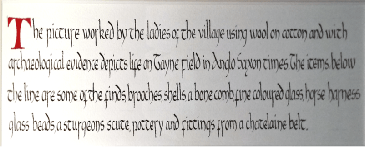 The picture worked by the ladies of the village using wool on cotton and with
archaeological evidence depicts life on Tayne field in Anglo Saxon times The items below
the line are some of the finds brooches shells a bone comb, fine coloured glass, horse harness
glass beads a sturgeons scute, pottery and fittings from a chatelaine belt.